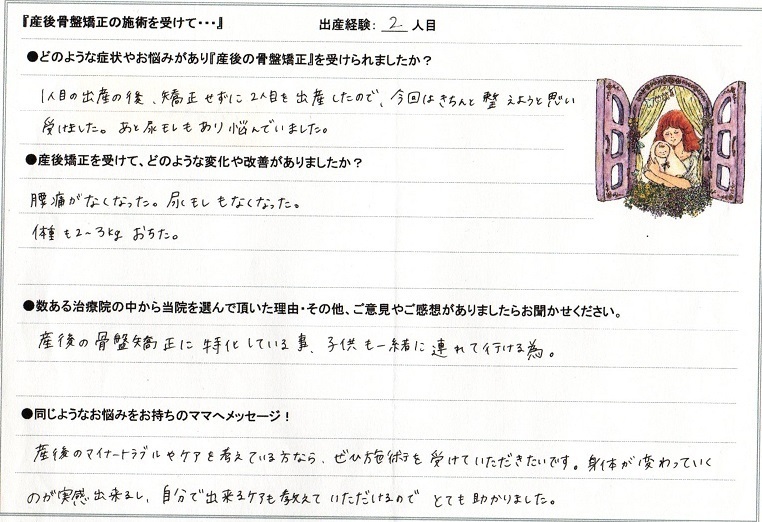 『産後骨盤矯正の施術を受けて・・・』 出産経験: 2 人目
●どのような症状やお悩みがあり『産後の骨盤矯正』を受けられましたか？
1人目の出産の後、矯正せずに2人目を出産したので、今回はきちんと整えようと思い
受けました。あと尿モレもあり悩んでいました。
●産後矯正を受けて、どのような変化や改善がありましたか？
腰痛がなくなった。尿もれもなくなった。
体重も2～3kgおちた。
●数ある治療院の中から当院を選んで頂いた理由・その他、ご意見やご感想がありましたらお聞かせください。
産後の骨盤矯正に特化している事、子供も一緒に連れて行ける為。
●同じようなお悩みをお持ちのママへメッセージ！
産後のマイナートラブルやケアを考えている方なら、ぜひ施術を受けていただきたいです。身体が変わっていく
のが実感出来るし、自分で出来るケアも教えていただけるのでとても助かりました。